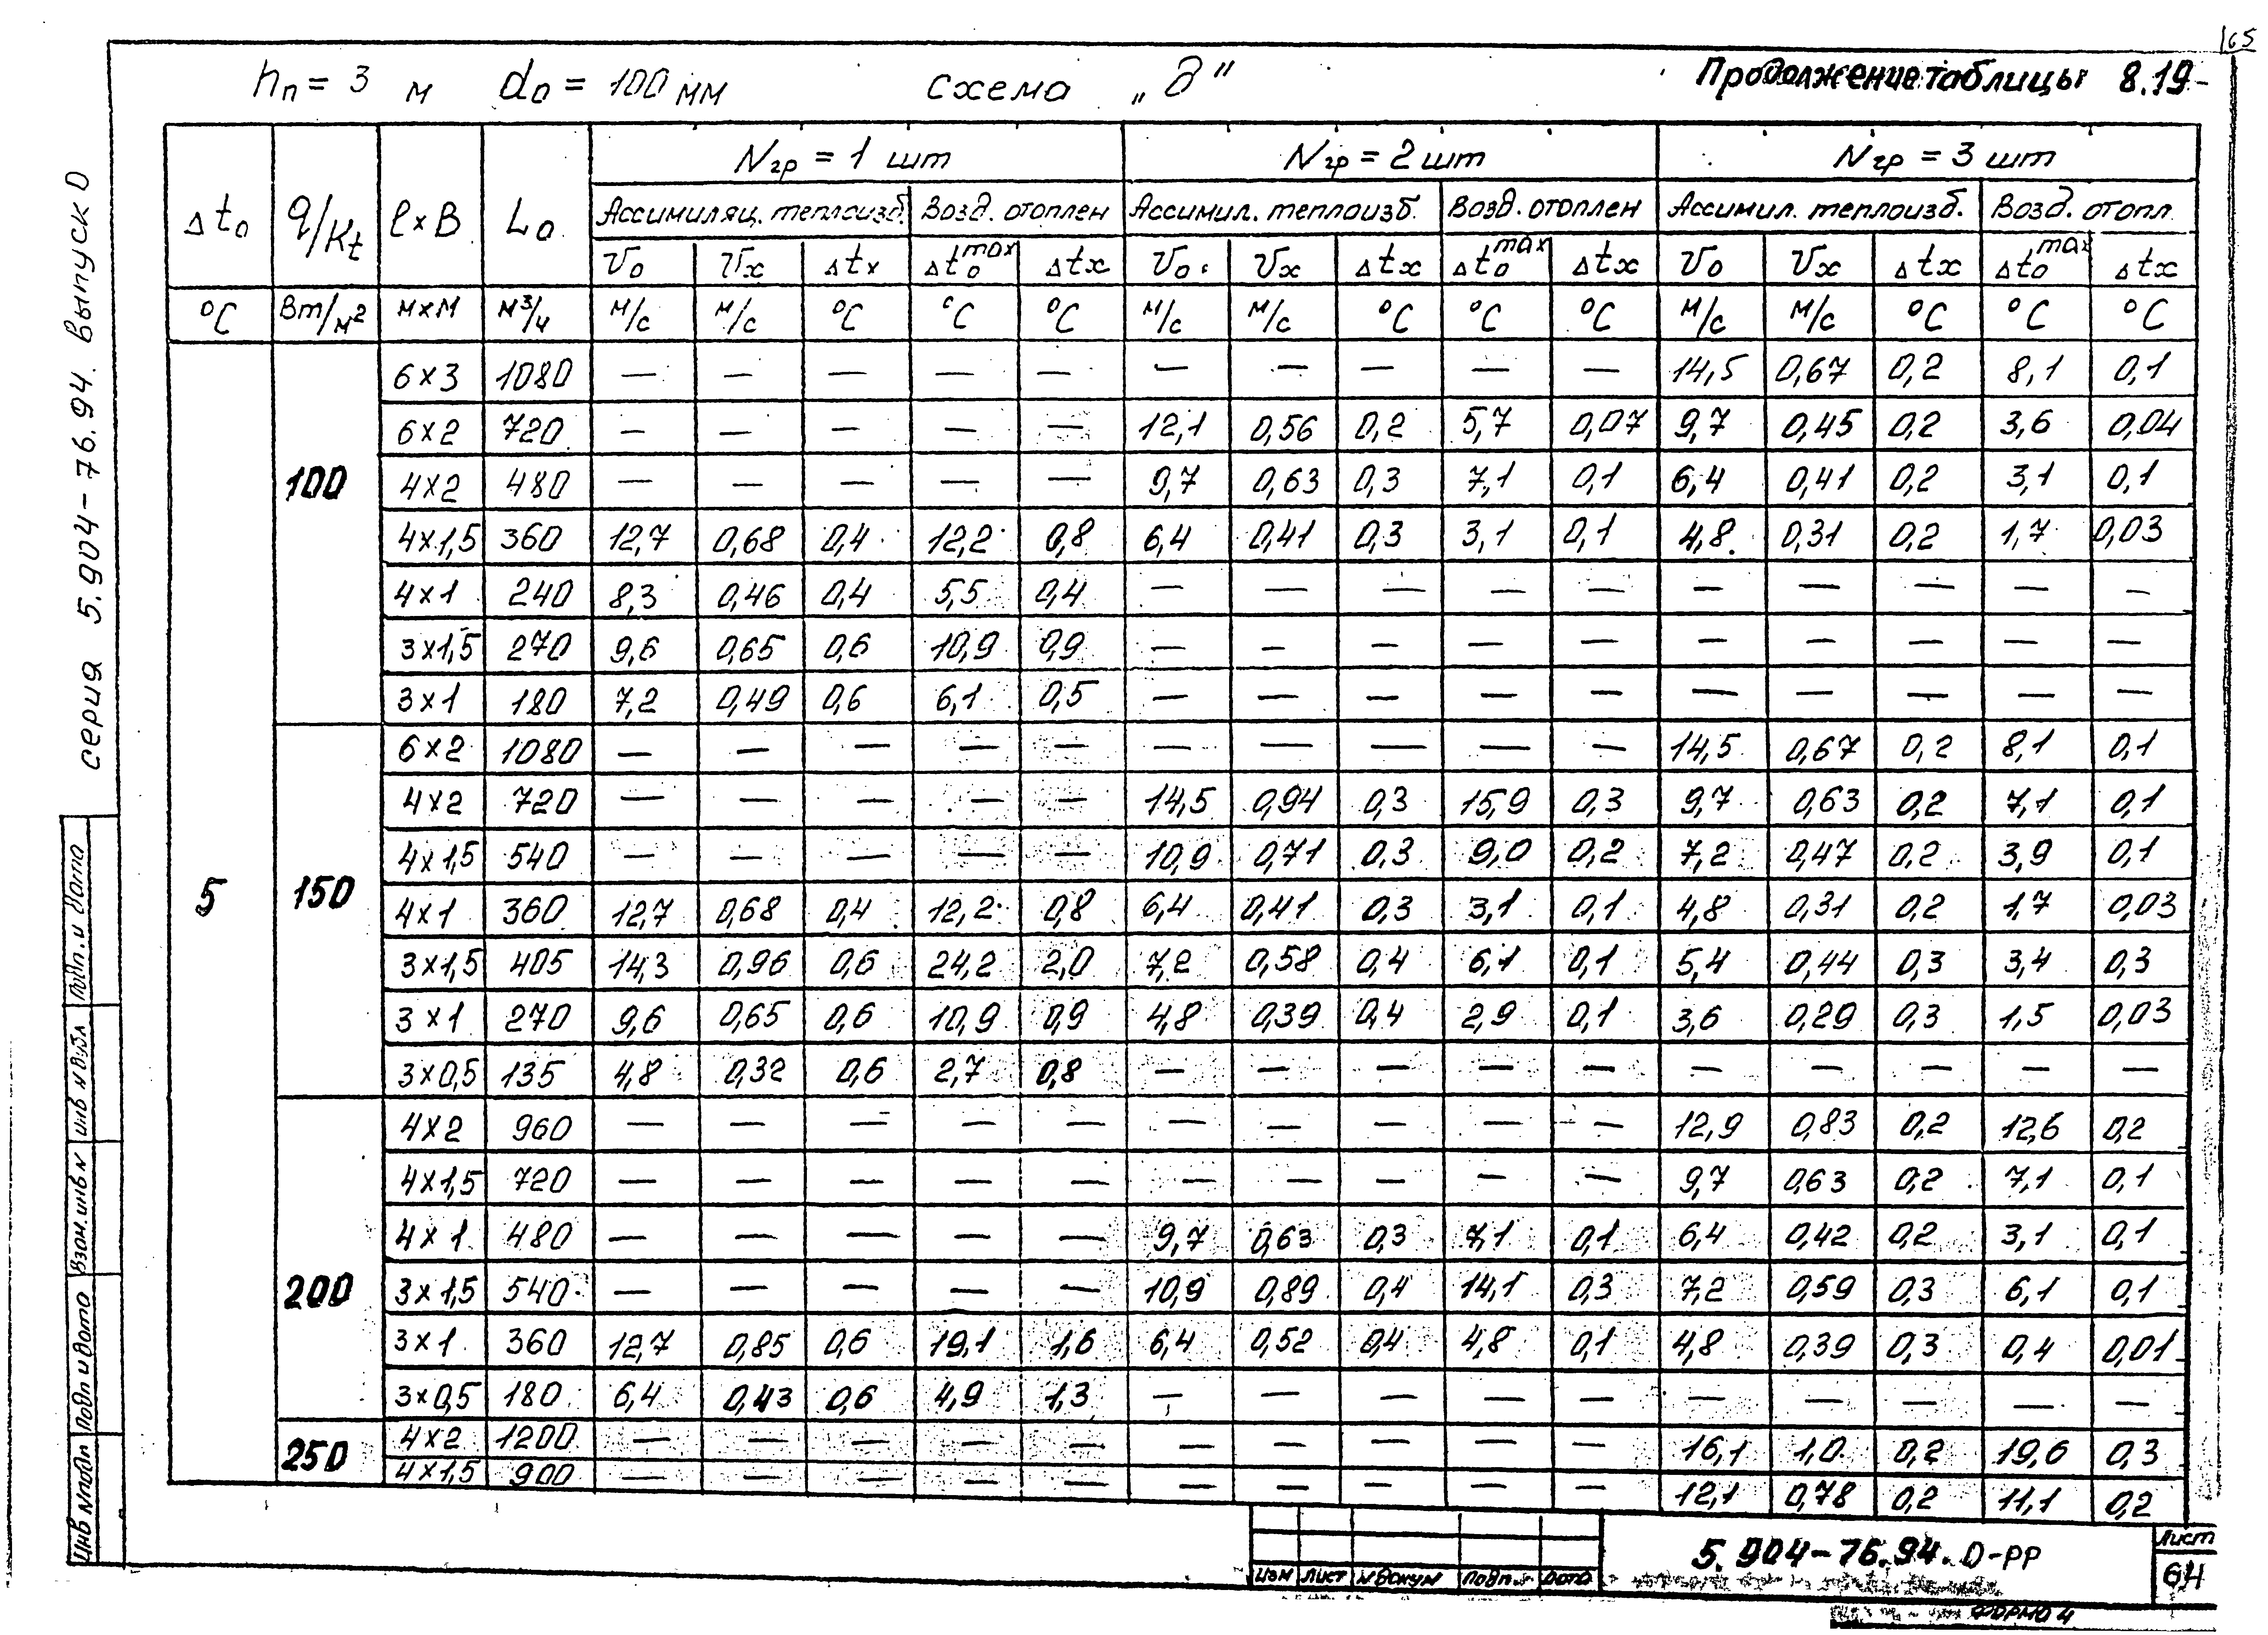 65
hп = 3 м d₀ = 100 мм схема „д" Продолжение таблицы 8.19
Δt₀ q/Kt ℓ×B L₀ Nгр = 1 шт Nгр = 2 шт Nгр = 3 шт
Ассимиляц. теплоизб. Возд. отоплен Ассимил. теплоизб. Возд. отоплен Ассимил. теплоизб. Возд. отопл.
V₀ Vx Δtx Δt₀max Δtx V₀ Vx Δtx Δt₀max Δtx V₀ Vx Δtx Δt₀max Δtx
°C Вт/м² м×м м³/ч м/с м/с °C °C °C м/с м/с °C °C °C м/с м/с °C °C °C
5
100
6×3 1080 — — — — — — — — — — 14,5 0,67 0,2 8,1 0,1
6×2 720 — — — — — 12,1 0,56 0,2 5,7 0,07 9,7 0,45 0,2 3,6 0,04
4×2 480 — — — — — 9,7 0,63 0,3 7,1 0,1 6,4 0,41 0,2 3,1 0,1
4×1,5 360 12,7 0,68 0,4 12,2 0,8 6,4 0,41 0,3 3,1 0,1 4,8 0,31 0,2 1,7 0,03
4×1 240 8,3 0,46 0,4 5,5 0,4 — — — — — — — — — —
3×1,5 270 9,6 0,65 0,6 10,9 0,9 — — — — — — — — — —
3×1 180 7,2 0,49 0,6 6,1 0,5 — — — — — — — — — —
150
6×2 1080 — — — — — — — — — — 14,5 0,67 0,2 8,1 0,1
4×2 720 — — — — — 14,5 0,94 0,3 15,9 0,3 9,7 0,63 0,2 7,1 0,1
4×1,5 540 — — — — — 10,9 0,71 0,3 9,0 0,2 7,2 0,47 0,2 3,9 0,1
4×1 360 12,7 0,68 0,4 12,2 0,8 6,4 0,41 0,3 3,1 0,1 4,8 0,31 0,2 1,7 0,03
3×1,5 405 14,3 0,96 0,6 24,2 2,0 7,2 0,58 0,4 6,1 0,1 5,4 0,44 0,3 3,4 0,3
3×1 270 9,6 0,65 0,6 10,9 0,9 4,8 0,39 0,4 2,9 0,1 3,6 0,29 0,3 1,5 0,03
3×0,5 135 4,8 0,32 0,6 2,7 0,8 — — — — — — — — — —
200
4×2 960 — — — — — — — — — — 12,9 0,83 0,2 12,6 0,2
4×1,5 720 — — — — — — — — — — 9,7 0,63 0,2 7,1 0,1
4×1 480 — — — — — 9,7 0,63 0,3 7,1 0,1 6,4 0,42 0,2 3,1 0,1
3×1,5 540 — — — — — 10,9 0,89 0,4 14,1 0,3 7,2 0,59 0,3 6,1 0,1
3×1 360 12,7 0,85 0,6 19,1 1,6 6,4 0,52 0,4 4,8 0,1 4,8 0,39 0,3 0,4 0,01
3×0,5 180 6,4 0,43 0,6 4,9 1,3 — — — — — — — — — —
250
4×2 1200 — — — — — — — — — — 16,1 1,0 0,2 19,6 0,3
4×1,5 900 — — — — — — — — — — 12,1 0,78 0,2 11,1 0,2
серия 5.904-76.94. выпуск 0
Подп. и дата
Инв N дубл
Взам. инв N
Подп и дата
Инв N подл
Изм Лист N докум Подп. Дата
5.904-76.94.0-РР
Лист
64
Формат 4